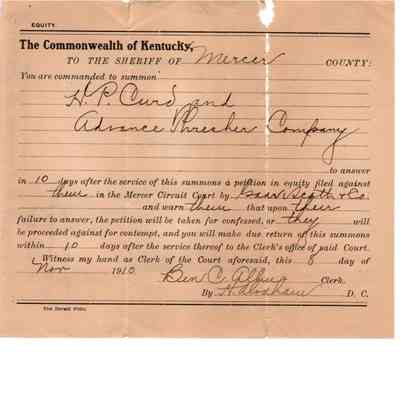 EQUITY.
The Commonwealth of Kentucky,
TO THE SHERIFF OF Mercer COUNTY:
You are commanded to summon
H. P. Curd and
Advance Thresher Company
to answer
in 10 days after the service of this summons a petition in equity filed against
them in the Mercer Circuit Court by Gaar Scott & Co.
and warn them that upon their
failure to answer, the petition will be taken for confessed, or they will
be proceeded against for contempt, and you will make due return of this summons
within 10 days after the service thereof to the Clerk's office of said Court.
Witness my hand as Clerk of the Court aforesaid, this 8 day of
Nov 1910.
Ben C. Clerk.
By D. C.
The Herald Print.